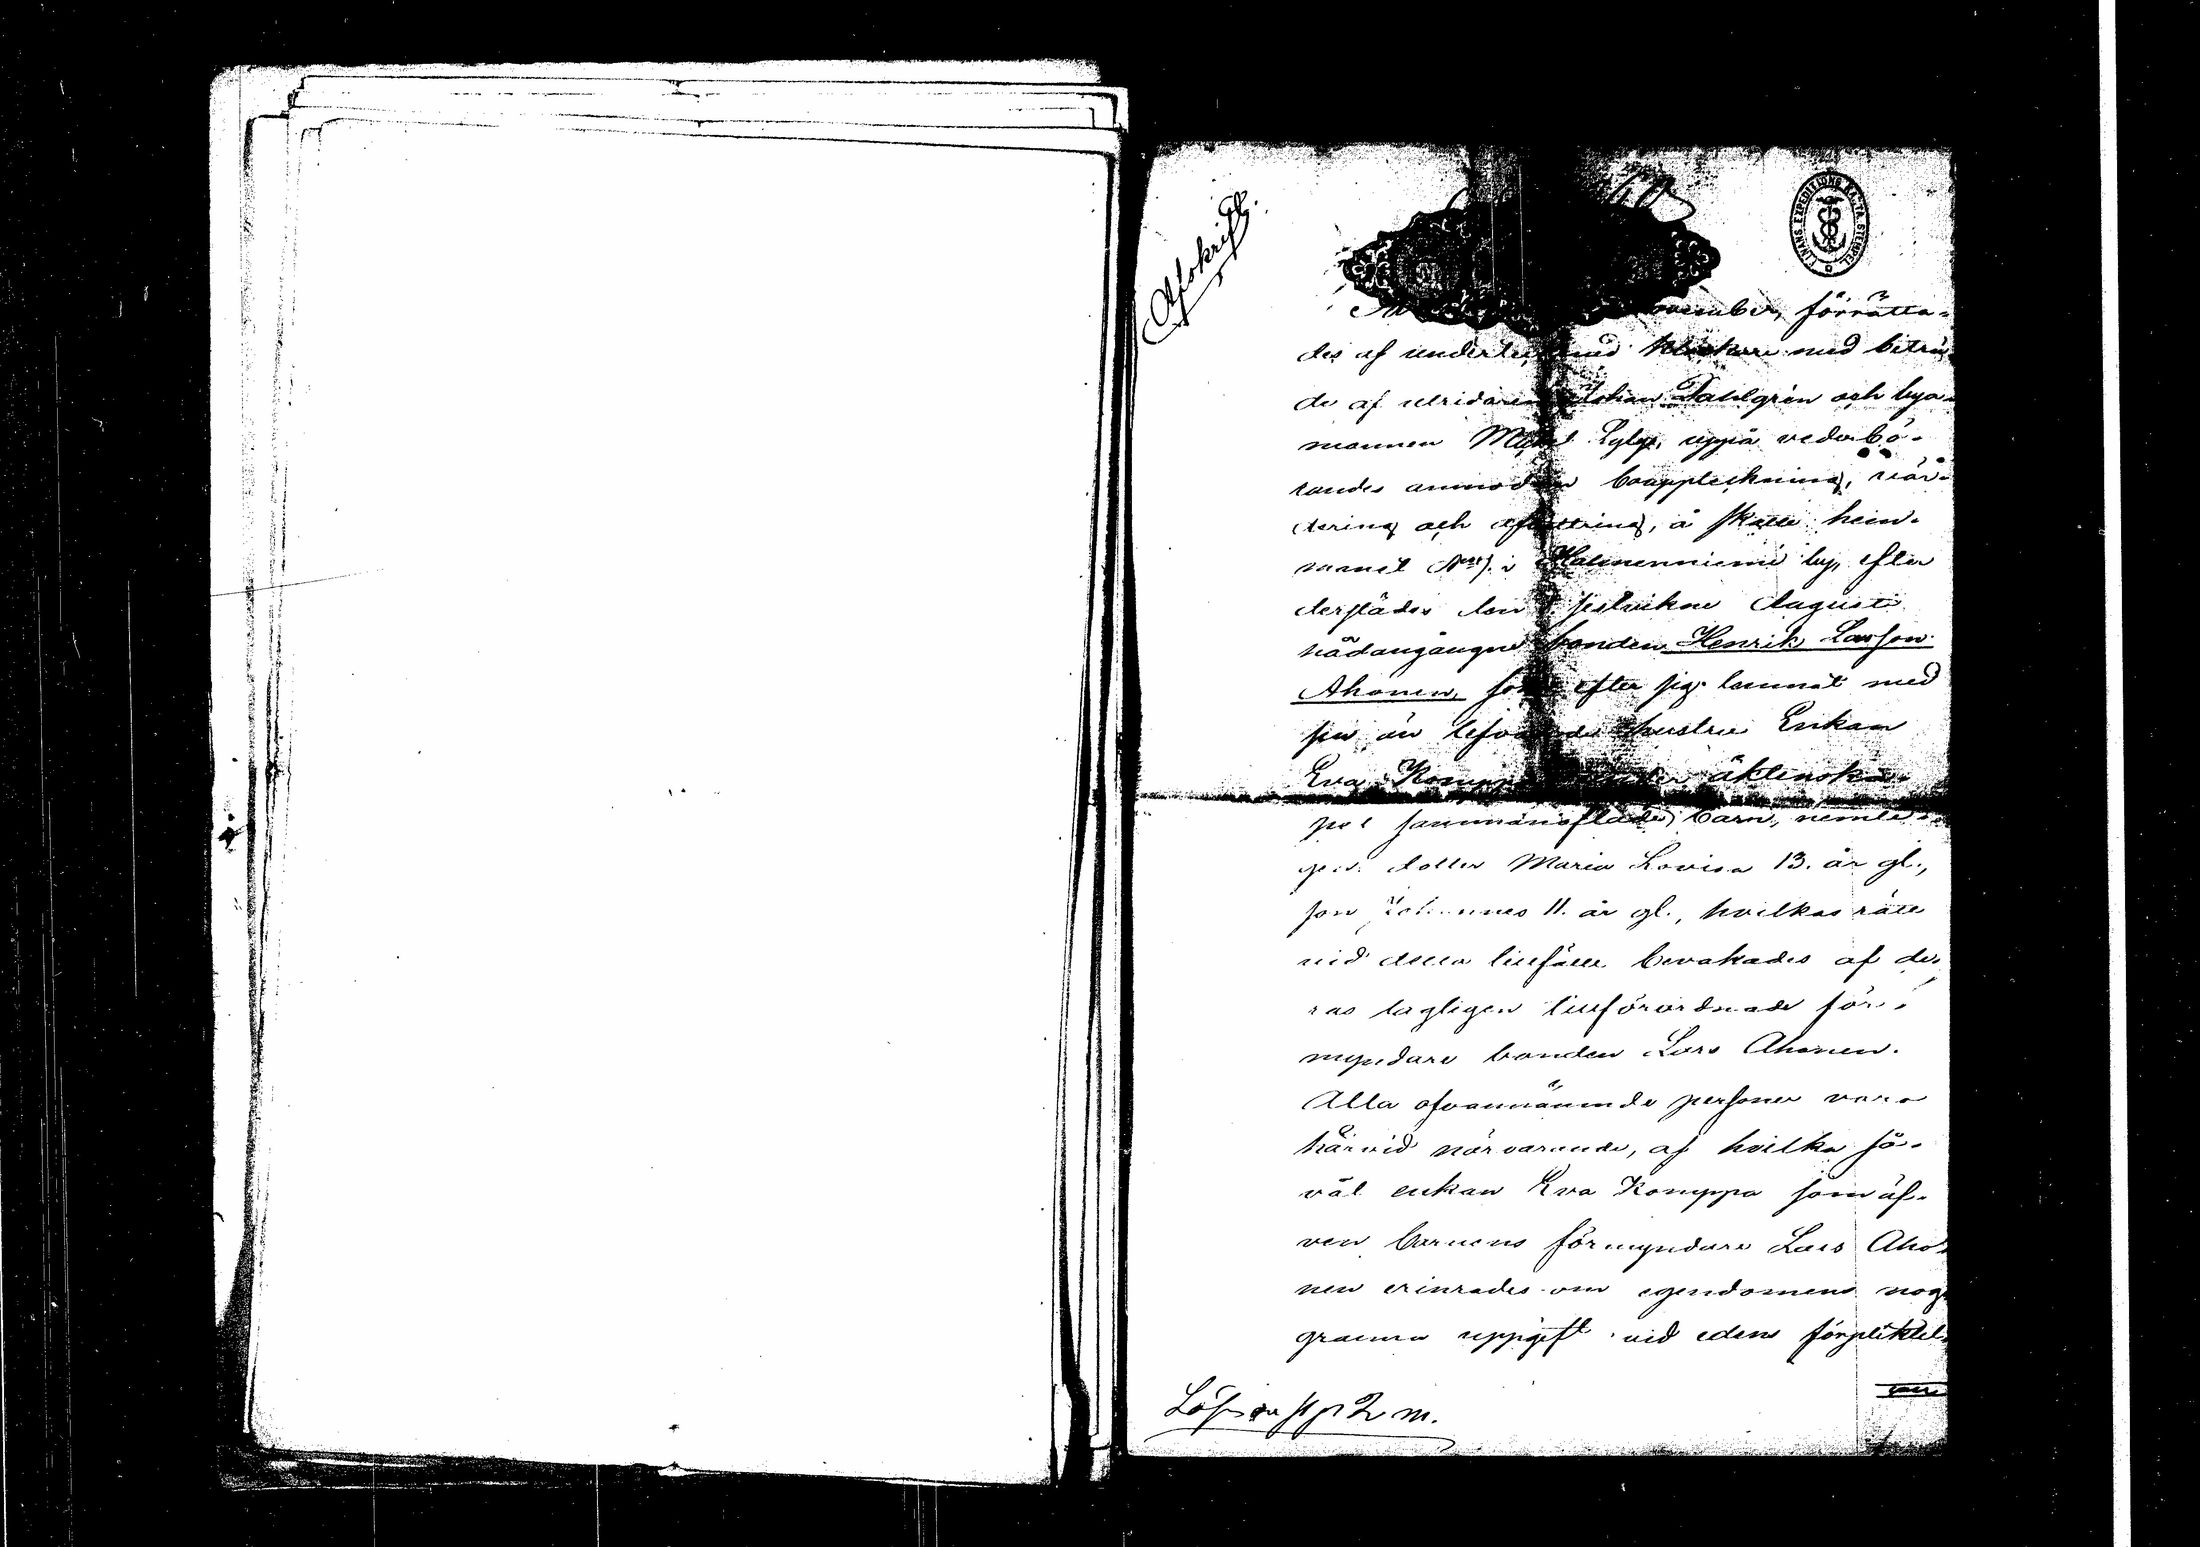 Afskrift.
FINANS EXPEDITIONS KARTA STEMPEL
November, förrätta-
des af undertecknad klockare med biträ-
de af utridaren Johan Dahlgrén och bya-
mannen Lylyr, uppå vederbö-
randes anmodan bouppteckning, vär-
dering och afvittring, å skatte hem-
manet i Halmenniemi by, efter
derstädes den sistvikne Augusti
hädangångne bonden Henrik Larsson
Ahonen, som efter sig lemnat med
sin än lefvande hustru Enkan
Eva Komppa äktenska-
pet sammanaflade barn, nemli-
gen: dotter Maria Lovisa 13. år gl.,
son Johannes 11. år gl., hvilkas rätt
vid detta tillfälle bevakades af de-
ras lagligen tillförordnade för-
myndare bonden Lars Ahonen.
Alla ofvannämnde personer voro
härvid närvarande, af hvilka så-
väl enkan Eva Komppa som äf-
ven barnens förmyndare Lars Aho-
nen erinrades om egendomens nog-
granna uppgift vid edens förpliktel-
Lösen 2 m.